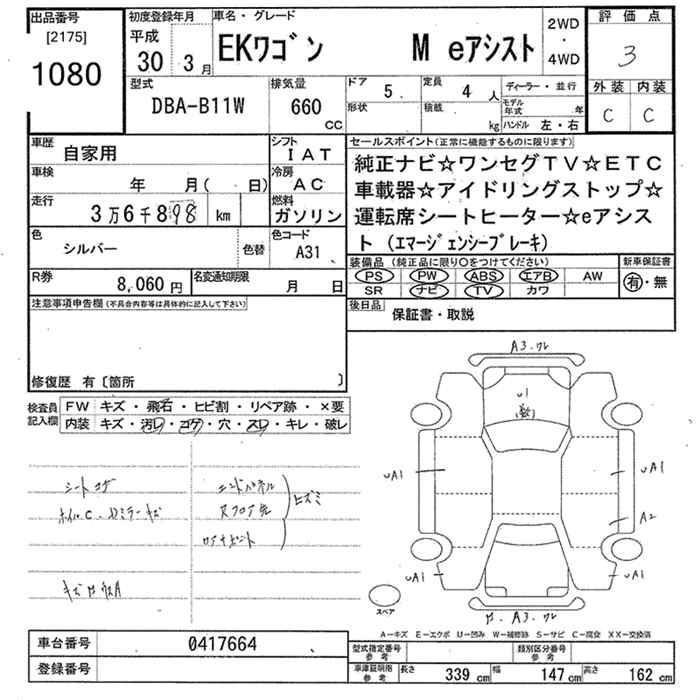 出品番号
[2175]
1080
初度登録年月
平成
30 3月
車名・グレード
EKワゴン M eアシスト
2WD
・
4WD
評価点
3
外装 内装
C C
型式
DBA-B11W
排気量
660
CC
ドア 5
形状
定員 4人
積載 kg
ディーラー・並行
モデル年式 年
ハンドル 左・右
車歴
自家用
シフト
IAT
車検
年 月( 日)
冷房
AC
走行
3万6千898 km
燃料
ガソリン
色
シルバー
色替
色コード
A31
R券
8,060円
名変通知期限
月 日
セールスポイント(正常に機能するものに限ります)
純正ナビ☆ワンセグTV☆ETC
車載器☆アイドリングストップ☆
運転席シートヒーター☆eアシス
ト(エマージェンシーブレーキ)
装備品 (純正品に限り○をつけてください)
PS PW ABS エアB AW
SR ナビ TV カワ
新車保証書
有・無
後日品
保証書・取説
注意事項申告欄(不具合内容等は具体的に記入して下さい)
修復歴 有〔箇所 〕
検査員
記入欄
FW キズ・飛石・ヒビ割・リペア跡・×要
内装 キズ・汚レ・コゲ・穴・スレ・キレ・破レ
シートコゲ
ホイルC・Dミラーキズ
エンドパネル
Rフロア先
ヒズミ
キズ凹 UA
A3・ワレ
U1
UA1
UA1
A2
UA1
UA1
A3・ワレ
スペア
A―キズ E―エクボ U―凹み W―補修跡 S―サビ C―腐食 XX―交換済
車台番号
0417664
登録番号
型式指定番号
参考
類別区分番号
参考
車庫証明用
参考
長さ 339 cm 幅 147 cm 高さ 162 cm